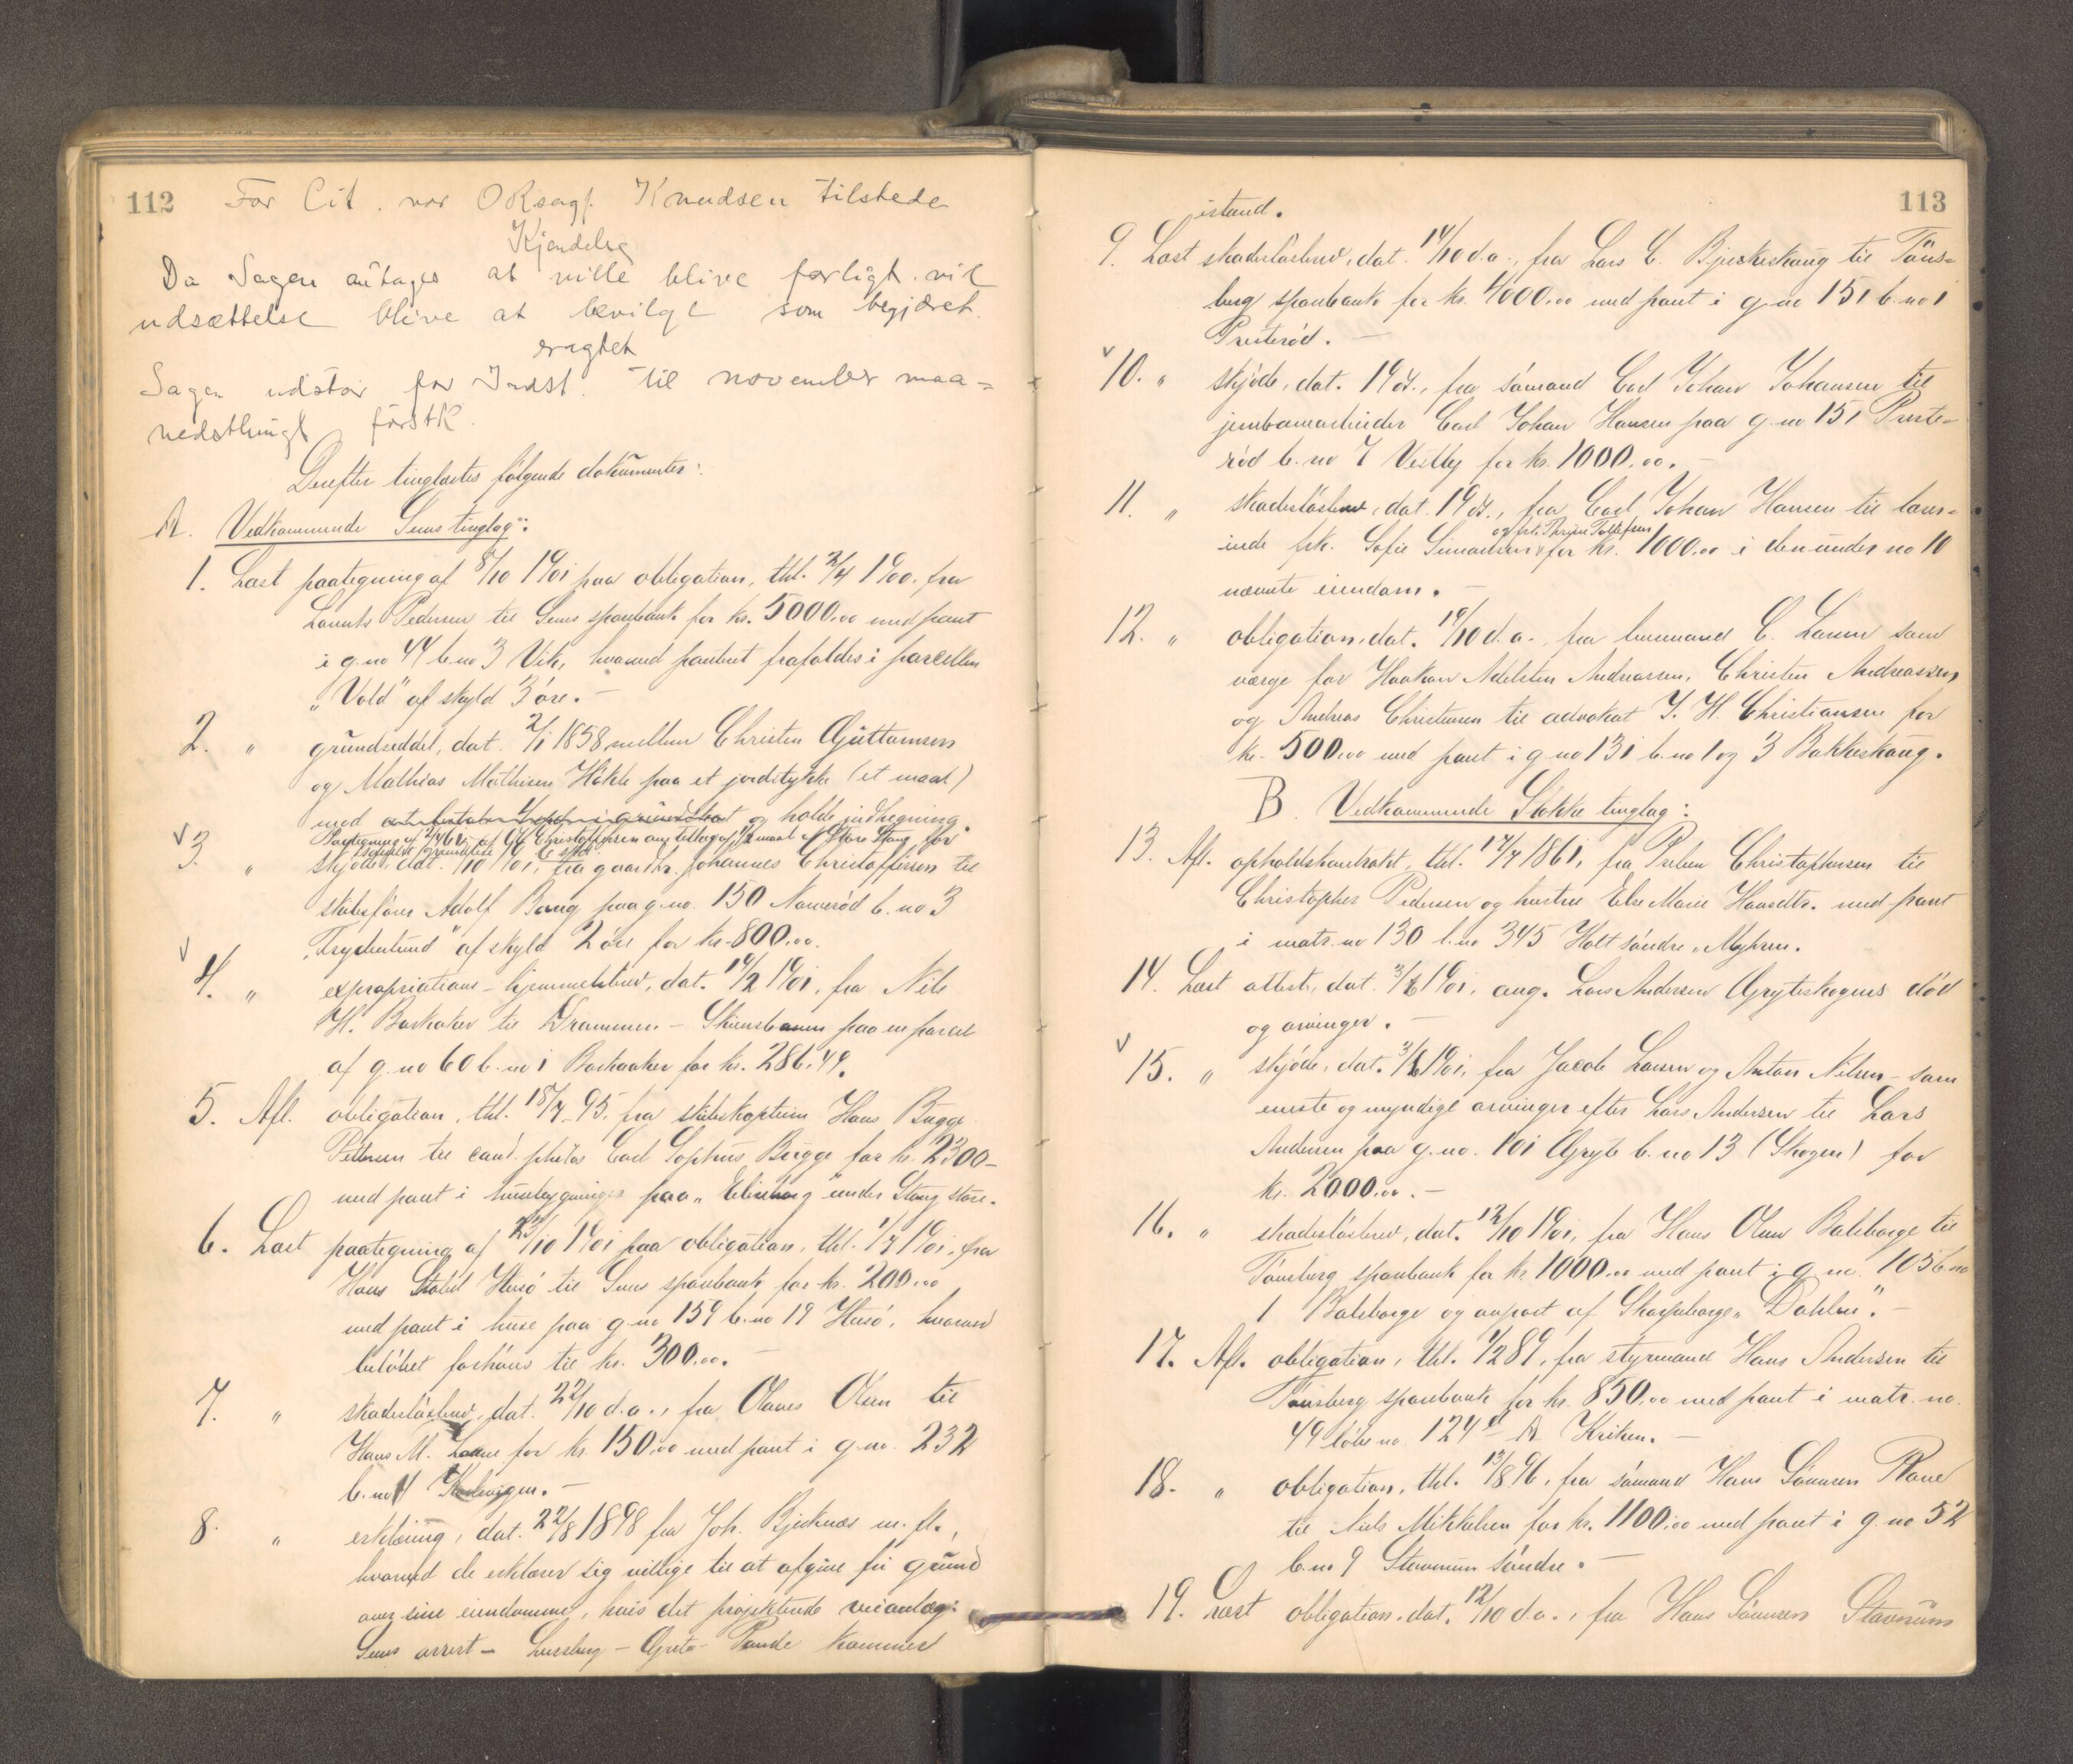 112
For Cit. var ORsagf. Knudsen tilstede
Kjendelse
Da Sagen antages at ville blive forligt vil
udsættelse blive at bevilge som begjæret.
eragtet
Sagen udstår for Indst. til november maa=
nedsthingt førstk.
Derefter tinglæstes følgende dokumenter:
A. Vedkommende Sems tinglag:
1. Læst paategning af 8/10 1901 paa obligation, thl. 2/4 1900. fra
Pedersen til Sems sparebank for kr. 5000.00 med pant
i g.no 44 b.no 3 Vik, hvorved pantet frafaldes i parcellen
"Vold" af skyld 3 øre. –
2. " grundseddel, dat. 2/1 1858 mellem Christen Guttormsen
og Mathias Mathisen paa et jordstykke (et maal)
med og holde indhegning.
Paategning af Christoffersen ang. tillæg af 1/2 maal af Store Stang for
3. " skjøde, dat. /10 1901, fra gaardbr. Johannes Christoffersen til
skibsfører Adolf Bang paa g.no. 150 Narverød b.no 3
"Frydenlund" af skyld 2 øre for kr. 800.00.
4. " expropriations-hjemmelsbrev, dat. 14/2 1901, fra Nils
H. Barkaker til Drammen-Skiensbanen paa en parcel
af g.no 60 b.no 1 Barkaaker for kr. 286.49.
5. Afl. obligation, thl. 18/7-95. fra skibskaptein Hans Bugge
Pettersen til cand. philos Carl Sophus Bugge for kr. 2300–
med pant i husebygninger paa "Elineborg" under Stang store.
6. Læst paategning af 23/10 1901 paa obligation, thl. 1/7 1901, fra
Hans Husø til Sems sparebank for kr. 200.00
med pant i huse paa g.no 159 b.no 19 Husø, hvorved
beløbet forhøies til kr. 300.00. –
7. " skadesløsbrev, dat. 22/10 d.a., fra Olaves Olsen til
Hans M. for kr. 150.00 med pant i g.no. 232
b.no 4 –
8. " erklæring, dat. 22/8 1898 fra Joh. Bjerknæs m. fl.,
hvorved de erklærer sig villige til at afgive fri grund
over sine eiendomme, hvis det projekterede veianlæg:
Sems arrest – – kommer
113
istand.
9. Læst skadesløsbrev, dat. 14/10 d.a., fra Lars C. Bjerkeskaug til Tøns=
berg sparebank for kr. 4000.00 med pant i g.no 151 b.no 1
Presterød. –
10. " skjøde, dat. 19 d.s., fra sømand Carl Johan Johansen til
jernbanearbeider Carl Johan Hansen paa g.no 151 Preste=
rød b.no 7 Vestby for kr. 1000.00. –
11. " skadesløsbrev, dat. 19 d.s., fra Carl Johan Hansen til lærer=
inde frk. Sofie Simonsen og frk. Thrine Tollefsen for kr. 1000.00 i den under no 10
nævnte eiendom. –
12. " obligation, dat. 19/10 d.a., fra C. Larsen som
værge for Haakon Adelsten Andreassen, Christen Andreassen,
og Andreas Christensen til advokat J. H. Christiansen for
kr. 500.00 med pant i g.no 131 b.no 1 og 3 Bakkeskaug.
B. Vedkommende Stokke tinglag:
13. Afl. opholdskontrakt, thl. 17/7 1861, fra Preben Christophersen til
Christopher Pedersen og hustru Else Marie Hansdtr. med pant
i matr. no 130 l.no 345 Holt søndre, Myhren.
14. Læst attest, dat. 3/6 1901, ang. Lars Andersen Gryteskogens død
og arvinger. –
15. " skjøde, dat. 3/6 1901, fra Jacob Larsen og Anton Nilsen – som
eneste og myndige arvinger efter Lars Andersen til Lars
Andersen paa g.no. 101 Gryte b.no 13 (Skogen) for
kr. 2000.00. –
16. " skadesløsbrev, dat. 12/10 1901, fra Hans Olsen Bakshorge til
Tønsberg sparebank for kr. 1000.00 med pant i g.no. 105 b.no
1 og anpart af "Dahlen". –
17. Afl. obligation, thl. 1/2 89, fra styrmand Hans Andersen til
Tønsberg sparebank for kr. 850.00 med pant i matr. no.
49 løbe no 124 A Kriken. –
18. " obligation, thl. 13/8 96, fra sømand Hans Sørensen
til Niels Mikkelsen for kr. 1100.00 med pant i g.no 52
b.no 9 Stavnum søndre. –
19. Læst obligation, dat. 12/10 d.a., fra Hans Sørensen Stavnum